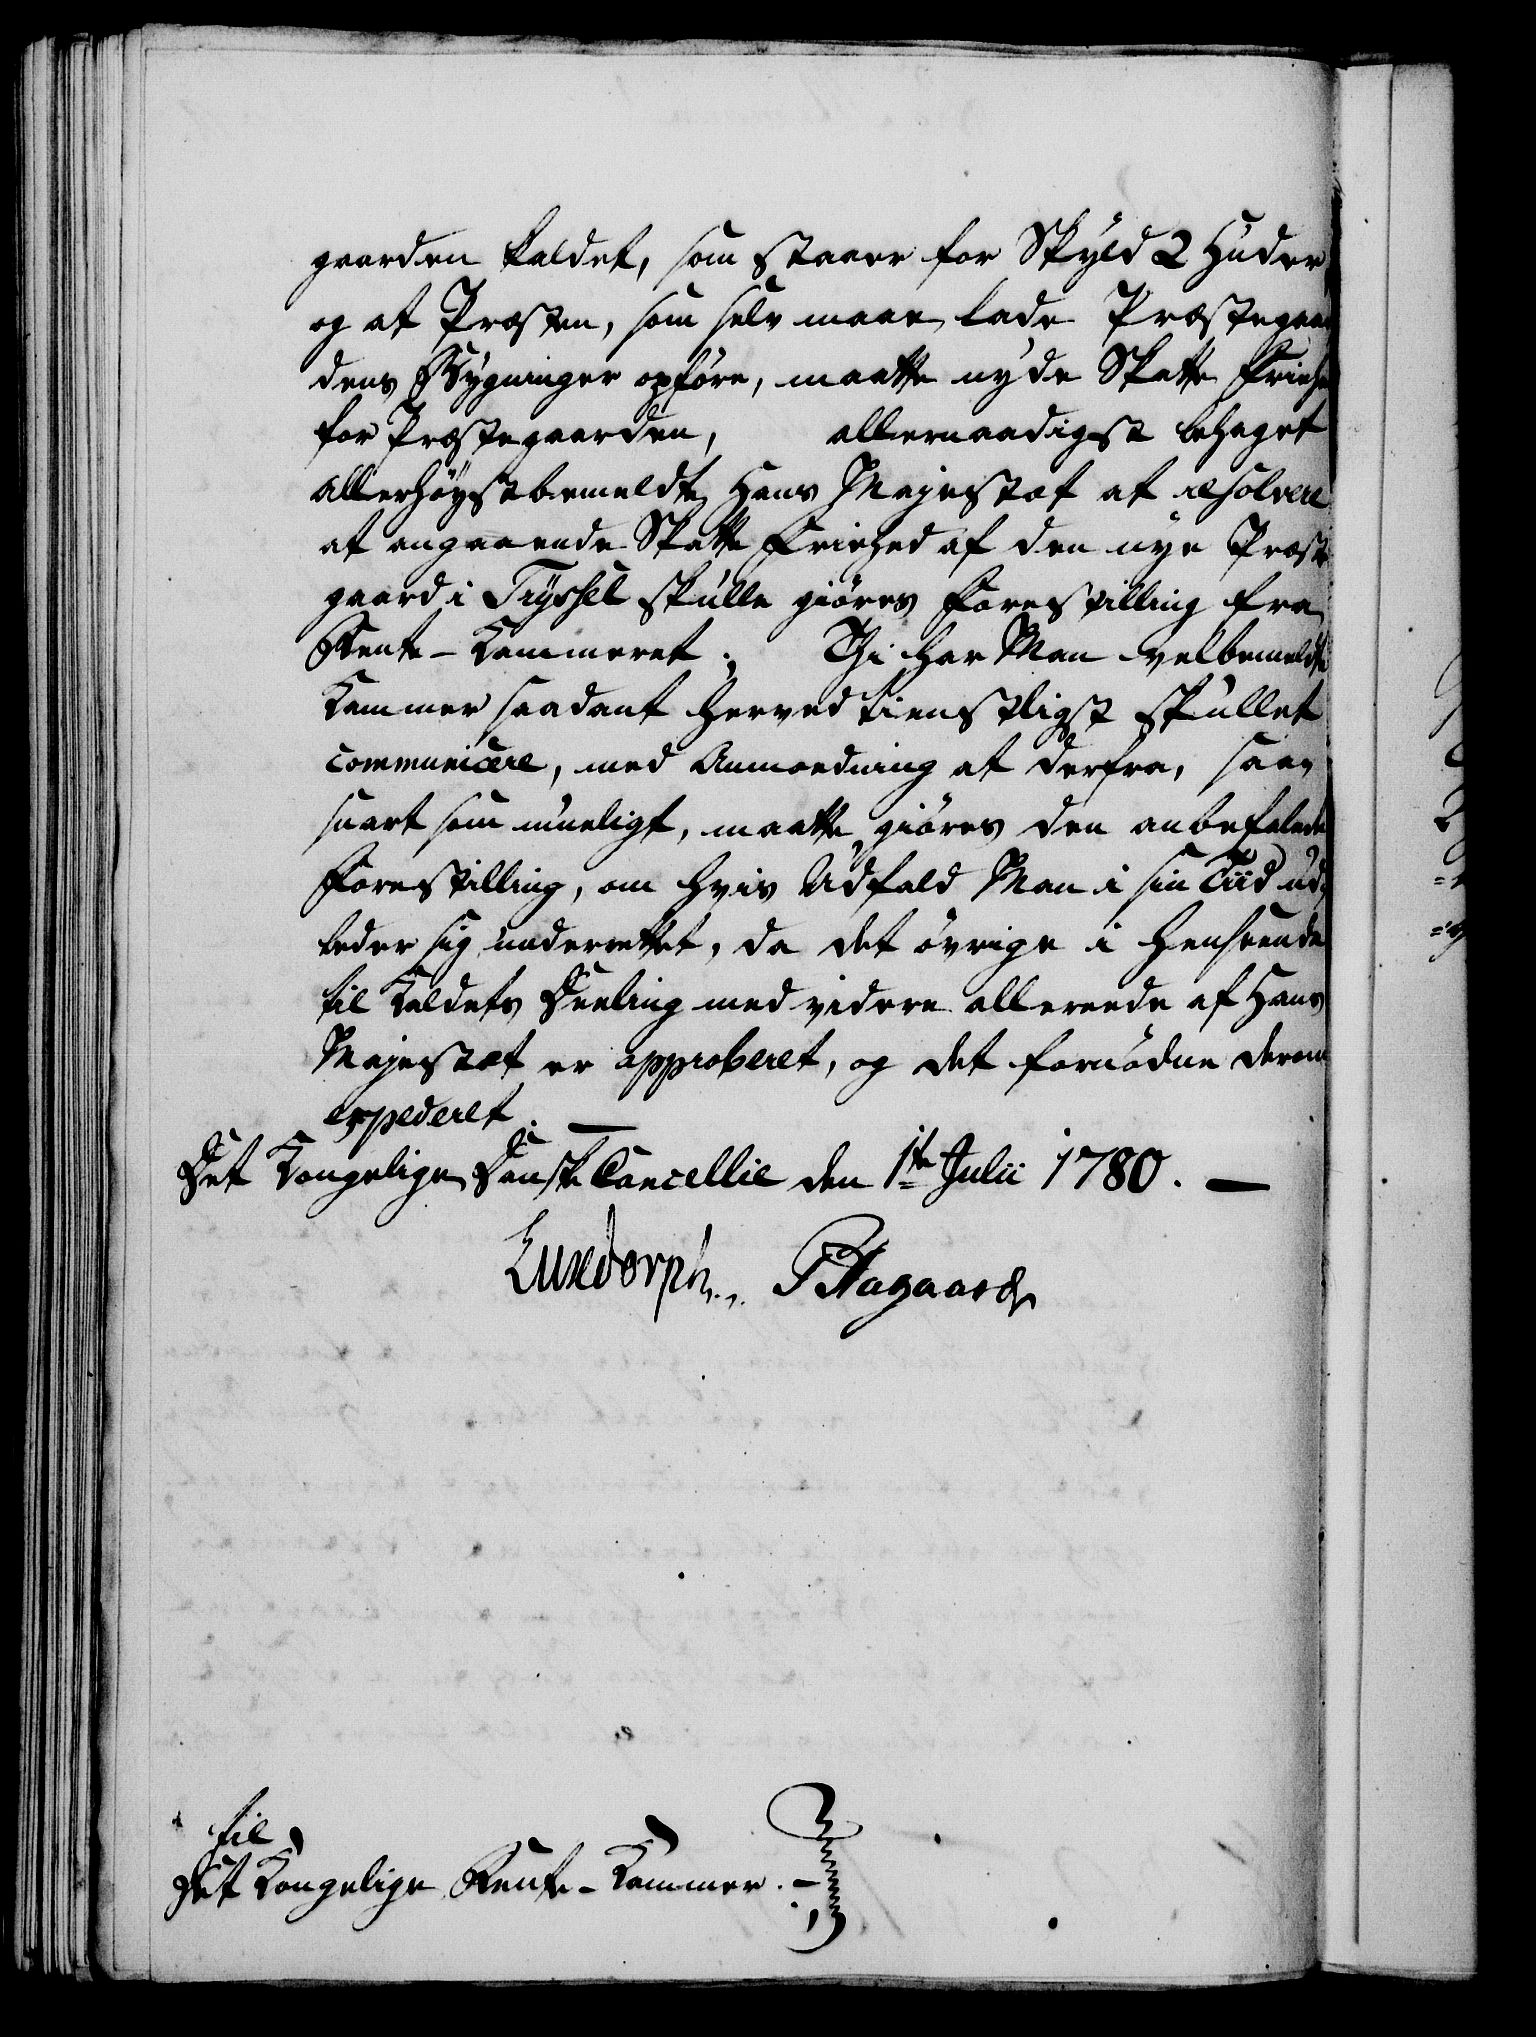 gaarden kaldet, som staaer for Skyld 2 Huder
og at Præsten, som selv maae lade Præstegaar
dens Bygninger opføre, maatte nyde Skatte Friehe
for Præstegaarden, allernaadigst behaget
Allerhøystbemeldte Hans Majestæt at resolvere
at angaaende Skatte Friehed af den nye Præste
gaard i Tryssel skulle giøres Forestilling fra
Rente-Kammeret; Thi har Man velbemeldte
Kammer saadant herved tienstligst skullet
communicere, med Anmodning at derfra, saa
snart som mueligt, maatte giøres den anbefalede
Forestilling, om hvis Udfald Man i sin Tiid ud,
beder sig underrettet, da det øvrige i henseende
til Kaldets Deeling med videre allereede af Hans
Majestæt er approberet, og det fornødne derom
expederet.
Det Kongelige Danske Cancellie den 1te Julii 1780. —
Luxdorph. Aagaard
til
Det Kongelige Rente-Kammer. -